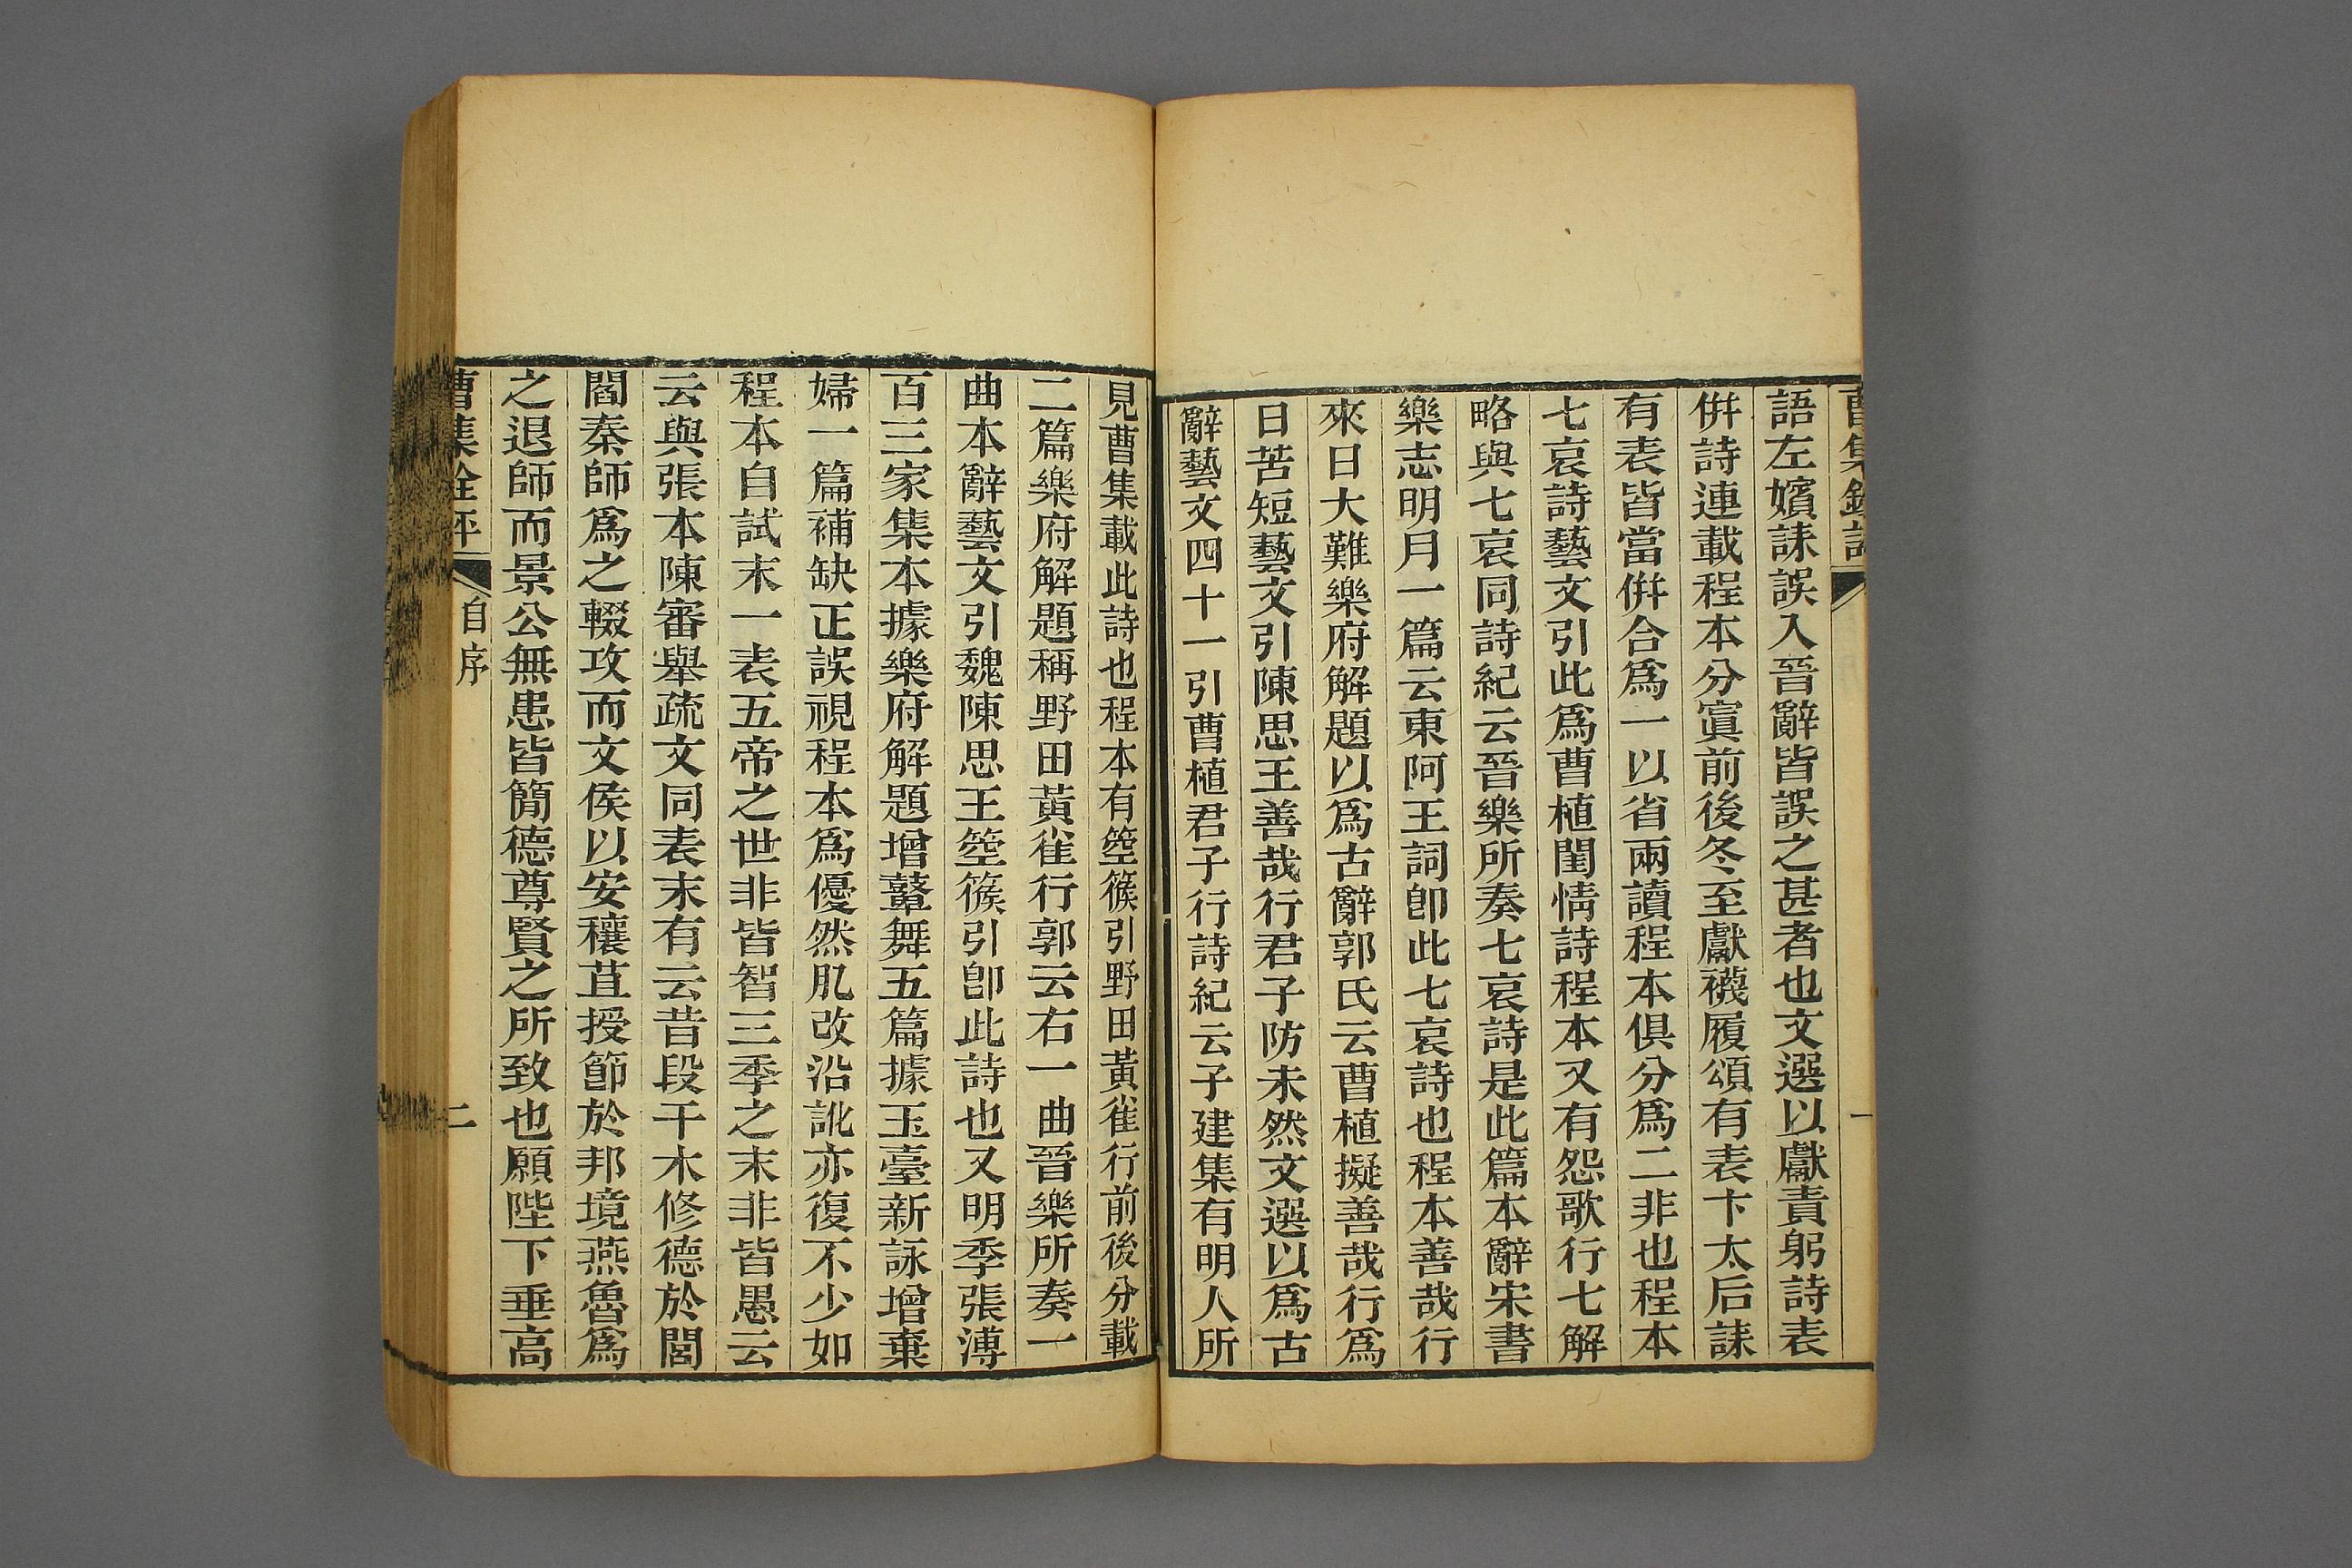 語左嬪誄誤入晉辭皆誤之甚者也文選以獻責躬詩表
併詩連載程本分寘前後冬至獻襪履頌有表卞太后誄
有表皆當併合爲一以省兩讀程本俱分爲二非也程本
七哀詩藝文引此爲曹植閨情詩程本又有怨歌行七解
略與七哀同詩紀云晉樂所奏七哀詩是此篇本辭宋書
樂志明月一篇云東阿王詞卽此七哀詩也程本善哉行
來日大難樂府解題以爲古辭郭氏云曹植擬善哉行爲
日苦短藝文引陳思王善哉行君子防未然文選以爲古
辭藝文四十一引曹植君子行詩紀云子建集有明人所
見曹集載此詩也程本有箜篌引野田黃雀行前後分載
二篇樂府解題稱野田黃雀行郭云右一曲晉樂所奏一
曲本辭藝文引魏陳思王箜篌引卽此詩也又明季張溥
百三家集本據樂府解題增鼙舞五篇據玉臺新詠增棄
婦一篇補缺正誤視程本爲優然肌改沿訛亦復不少如
程本自試末一表五帝之世非皆智三季之末非皆愚云
云與張本陳審舉疏文同表末有云昔段干木修德於閭
閻秦師爲之輟攻而文侯以安穰苴授節於邦境燕魯爲
之退師而景公無患皆簡德尊賢之所致也願陛下垂高
曹集銓評
自序
二